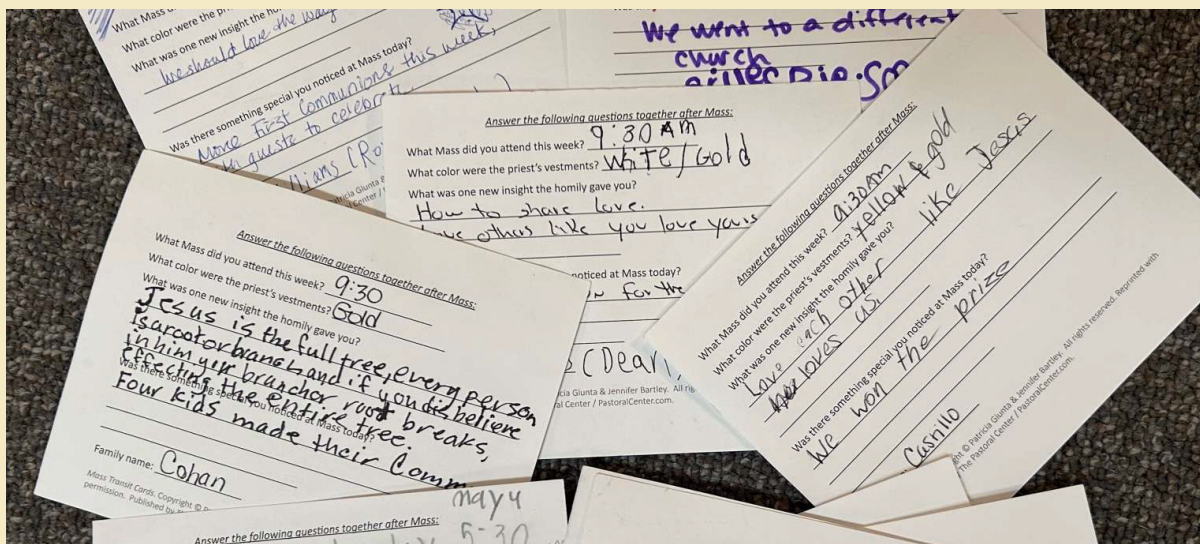 What Mass
What color were the priest's
What was one new insight the ho
we should love the way
Was there something special you noticed at Mass today?
More First Communions this week,
guests to celebrate
We went to a different
church
Answer the following questions together after Mass:
What Mass did you attend this week? 9:30 AM
What color were the priest's vestments? White/Gold
What was one new insight the homily gave you?
How to share love.
others like you love yours
noticed at Mass today?
for the
(Dear
cia Giunta & Jennifer Bartley. All rig
al Center / PastoralCenter.com.
Answer the following questions together after Mass:
What Mass did you attend this week? 9:30
What color were the priest's vestments? Gold
What was one new insight the homily gave you?
Jesus is the full tree, every person
is a root or branch and if you disbelieve
in him your branch or root breaks,
effecting the entire tree.
Was there something special you noticed at Mass today?
Four kids made their Comm
Family name: Cohan
Mass Transit Cards. Copyright ©
permission. Published by
Answer the following questions together after Mass:
What Mass did you attend this week? 9:30AM
What color were the priest's vestments? yellow & gold
What was one new insight the homily gave you?
Love each other like Jesus
loves us.
Was there something special you noticed at Mass today?
We won the prize
ght © Patricia Giunta & Jennifer Bartley. All rights reserved. Reprinted with
The Pastoral Center / PastoralCenter.com.
may 4
Answer the following questions together after Mass:
5-30